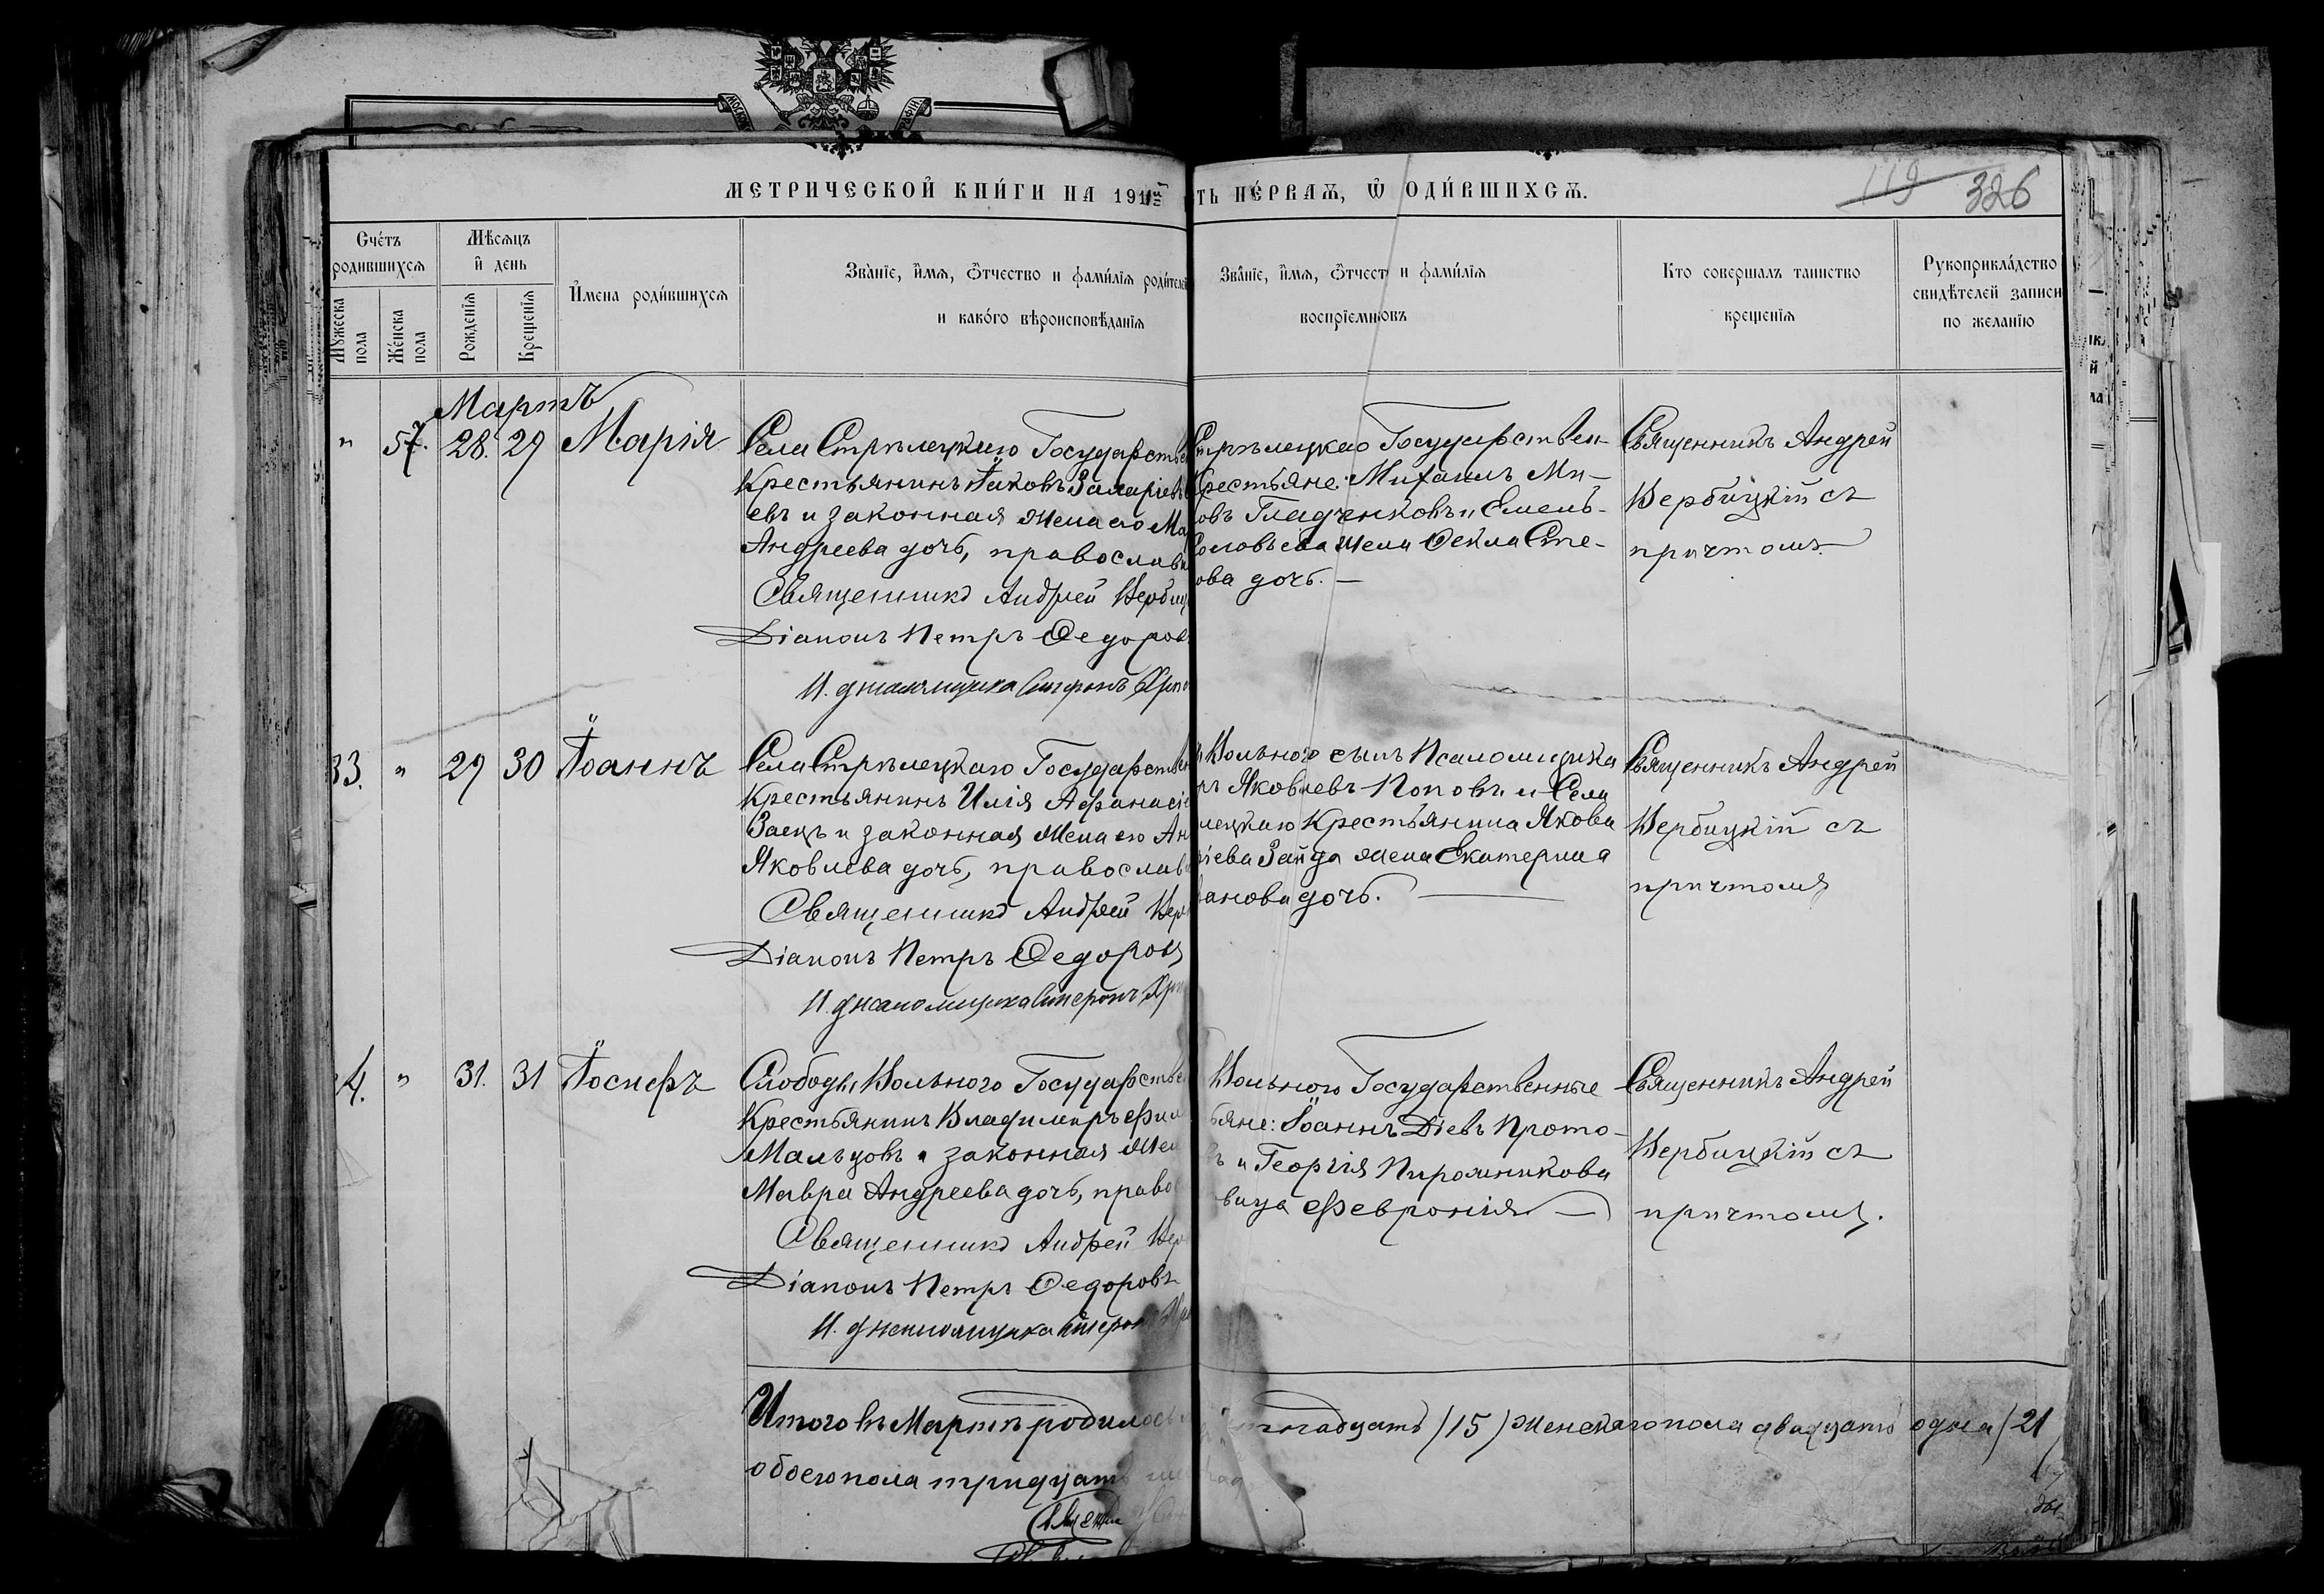 МЕТРИЧЕСКОЙ КНИ́ГИ НА 191
ТЬ ПЕ́РВАѦ, Ѡ ОДИ́ВШИХСѦ.
119 326
Сче́тъ родившихсѧ
Мѣсѧцъ и день
Мꙋжеска пола
Же́нска пола
Рожденїѧ
Крещенїѧ
И҆мена роди́вшихсѧ
Зва́нїе, и҆́мѧ, ѻ҆́тчество и фами́лїѧ роди́телей
и како́го вѣроисповѣданїѧ
Зва́нїе, и҆́мѧ, ѻ҆́тчест и фами́лїѧ
воспрїемниковъ
Кто совершалъ таинство
крещенїѧ
Рꙋкоприкла́дство
свидѣтелей записи
по желанїю
Мартъ
" 57. 28. 29 Марія
Села Стрѣлецкаго Государств
Крестьянинъ Іаковъ Захаріевъ
евъ и законная жена его Ма
Андреева дочь, православн
Священникъ Андрей Верби
Діаконъ Петръ Федоров
И. д. псаломщика
Стрѣлецкаго Государствен-
Крестьяне: Михаилъ Ми-
овъ Гладченковъ и Емель-
Соловьева жена Фекла Сте-
ова дочь. —
Священникъ Андрей
Вербицкій съ
причтомъ
33. " 29 30 Іоаннъ
Села Стрѣлецкаго Государствен
Крестьянинъ Илія Афанасіе
Заецъ и законная жена его Ан
Яковлева дочь, православ
Священникъ Андрей Вер
Діаконъ Петръ Федоров
И. д. псаломщика
Вольного сынъ Псаломщика
ръ Яковлевъ Поповъ и Села
лецкаго Крестьянина Якова
іева Зайца жена Екатерина
анова дочь. —
Священникъ Андрей
Вербицкій съ
причтомъ
4. " 31. 31 Іосифъ
Слободы Вольного Государстве
Крестьянинъ Владимиръ Фил
Мальцовъ и законная жен
Мавра Андреева дочь, право
Священникъ Андрей Вер
Діаконъ Петръ Федоровъ
И. д. псаломщика
Вольного Государственные
ьяне: Іоаннъ Діевъ Прото-
въ и Георгія Пирожникова
вица Февронія —
Священникъ Андрей
Вербицкій съ
причтомъ.
Итого въ Мартѣ родилось
надцать (15) женскаго пола двадцать одна (21
обоего пола тридцать